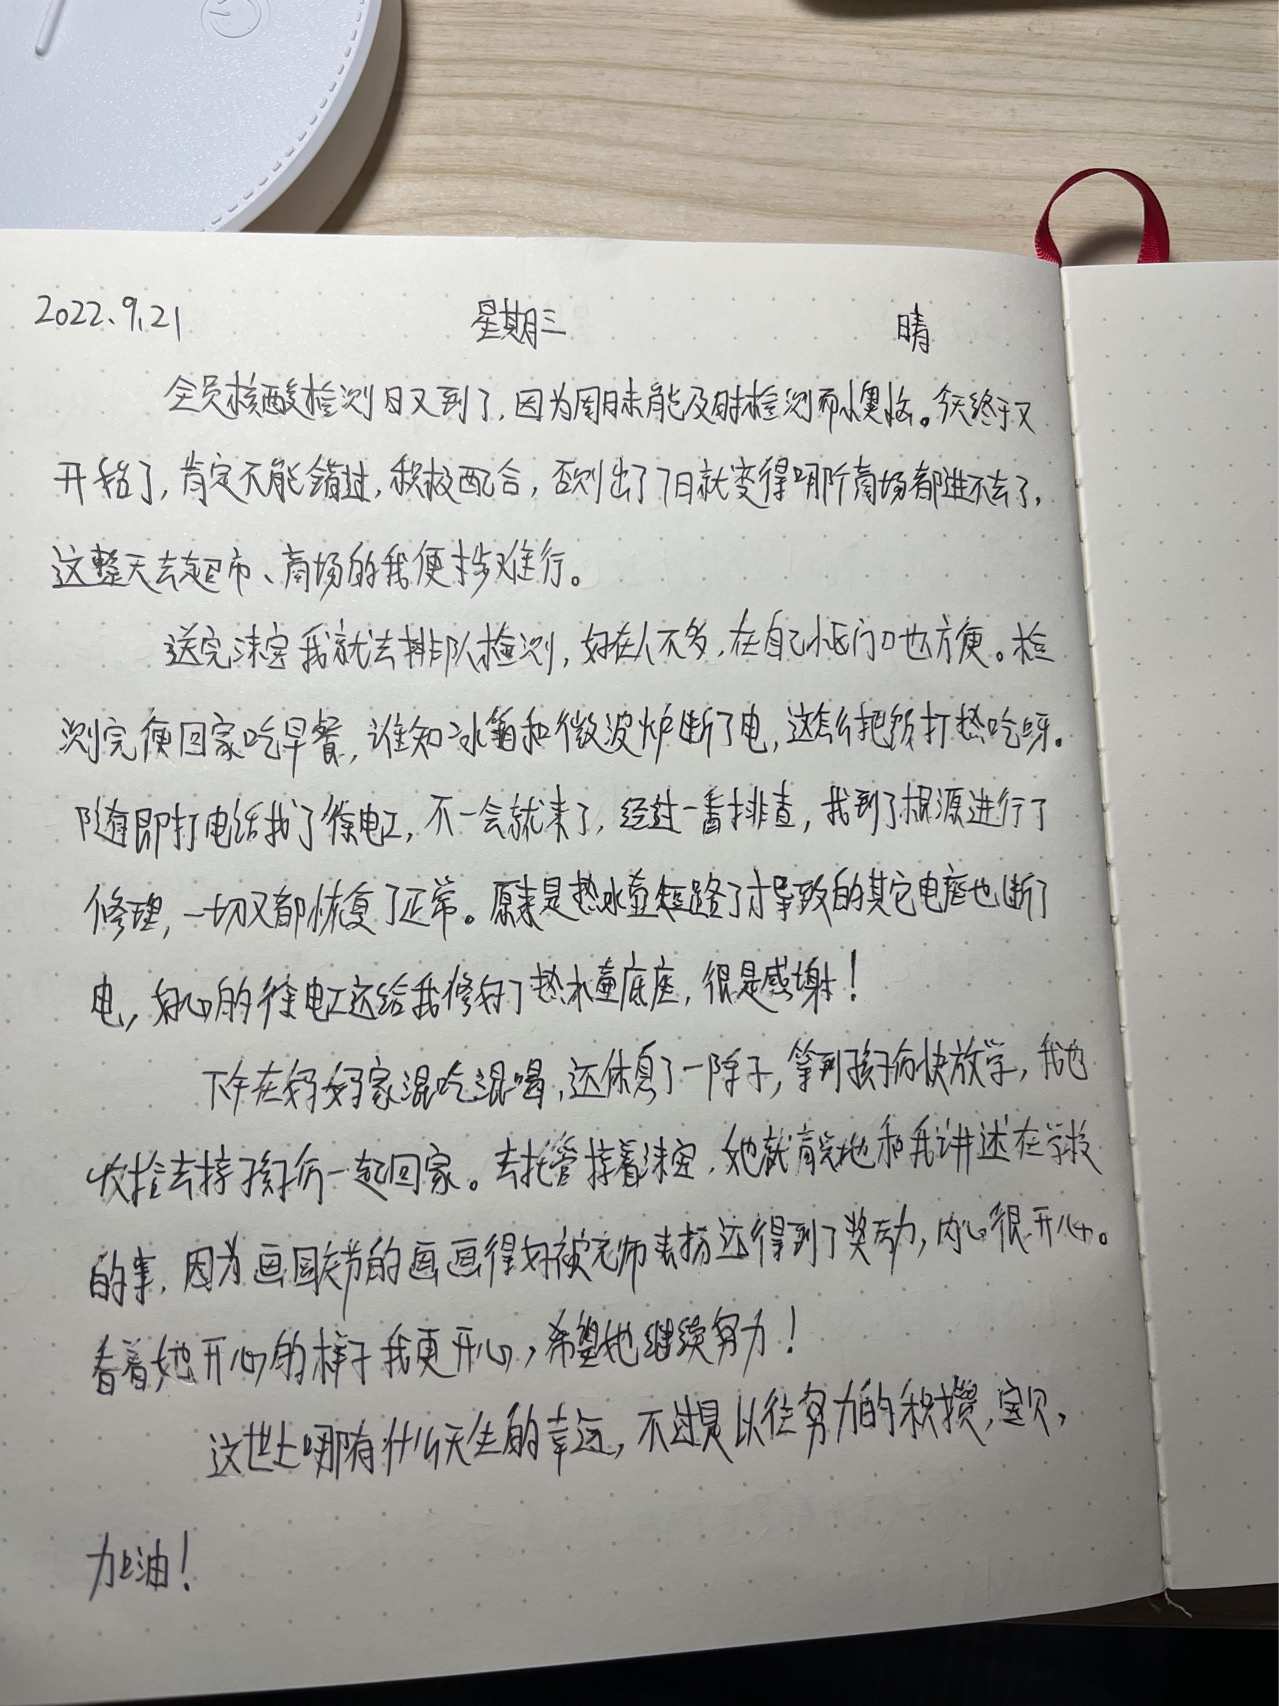 2022.9.21 星期三 晴
全员核酸检测日又到了,因为周末未能及时检测而懊恼。今天终于又
开始了,肯定不能错过,积极配合,否则出了7日就变得哪个商场都进不去了,
这整天去超市、商场的我便寸步难行。
送完涞宝我就去排队检测,好在人不多,在自己小区门口也方便。检
测完便回家吃早餐,谁知冰箱和微波炉断了电,这怎么把饭打热吃呀。
随即打电话找了徐电工,不一会就来了,经过一番排查,找到了根源进行了
修理,一切又都恢复了正常。原来是热水壶短路了才导致的其它电器也断了
电,好心的徐电工还给我修好了热水壶底座,很是感谢!
下午在妈妈家混吃混喝,还休息了一阵子,等到孩子们快放学,我也
收拾去接孩子们一起回家。去托管接着涞宝,她就高兴地和我讲述在学校
的事,因为画国庆节的画画得好被老师表扬还得到了奖励,内心很开心。
看着她开心的样子我更开心,希望她继续努力!
这世上哪有什么天生的幸运,不过是以往努力的积攒,宝贝,
加油!